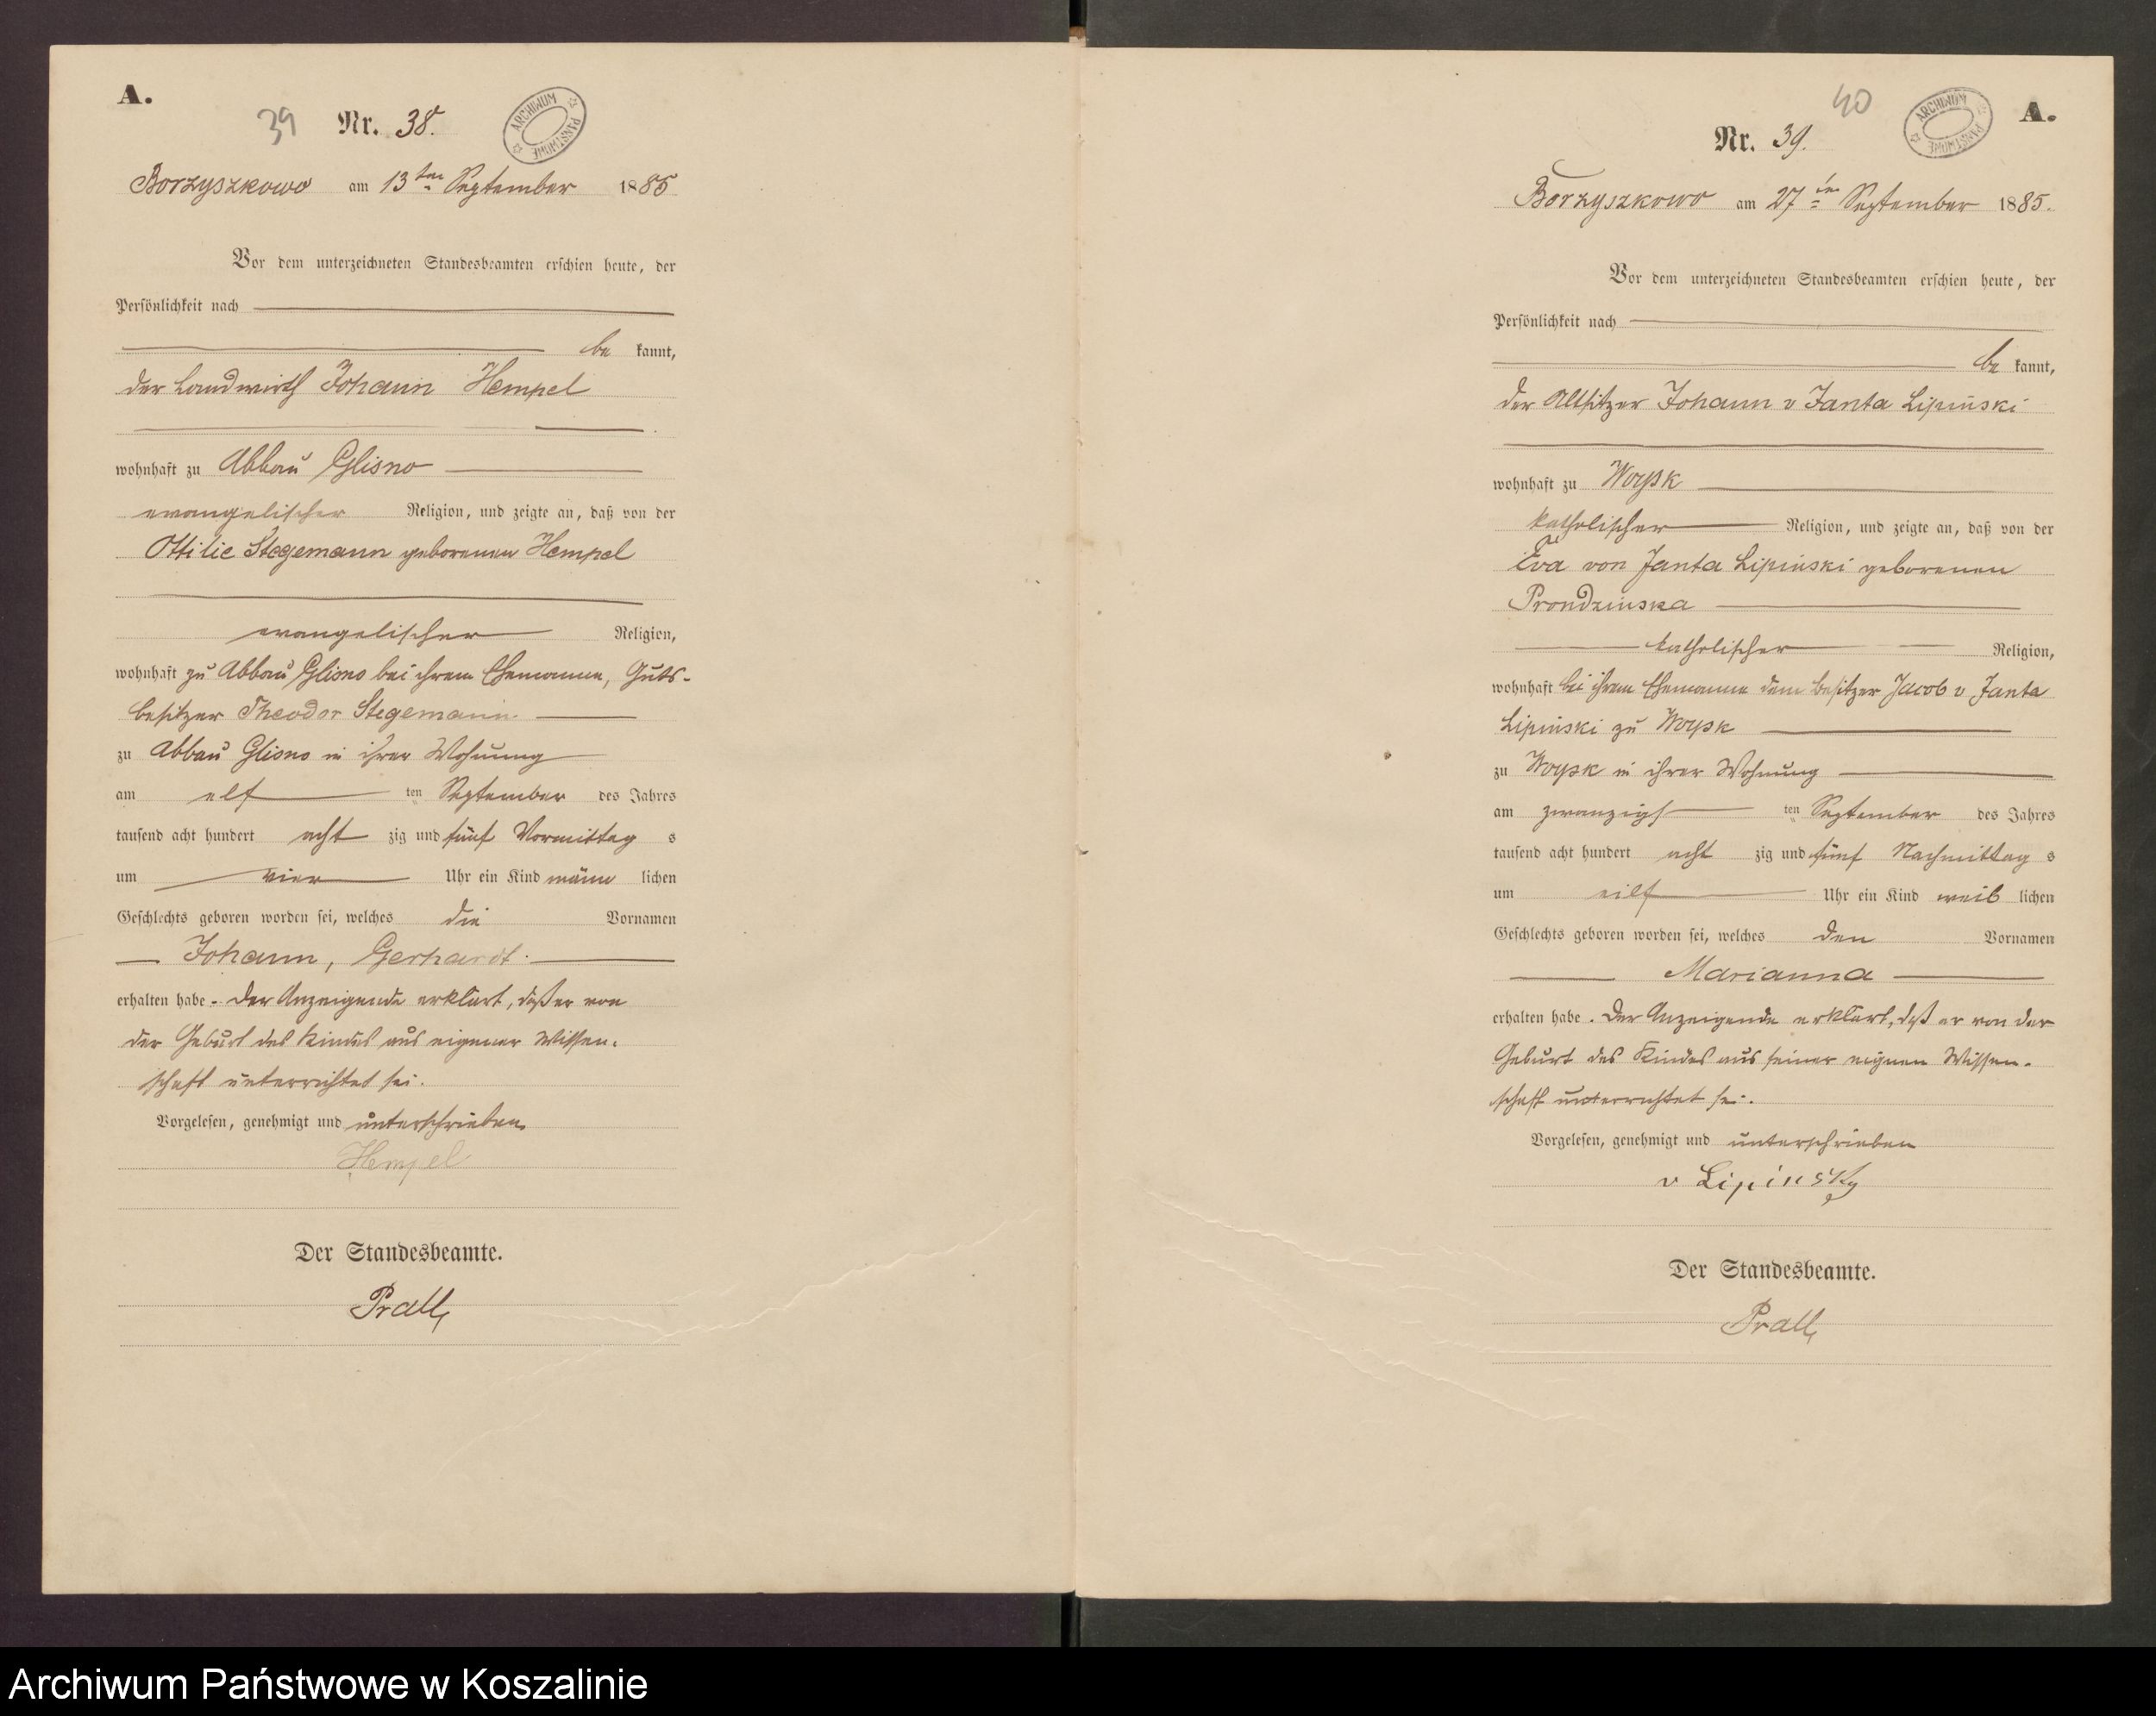 A.
39 Nr. 38.
ARCHIWUM PAŃSTWOWE
Borzyszkowo am 13ten September 1885
Vor dem unterzeichneten Standesbeamten erschien heute, der
Persönlichkeit nach
be kannt,
der Landwirth Johann Hempel
wohnhaft zu Abbau Glisno
evangelischer Religion, und zeigte an, daß von der
Ottilie Stegemann geborenen Hempel
evangelischer Religion,
wohnhaft zu Abbau Glisno bei ihrem Ehemanne, Guts-
besitzer Theodor Stegemann
zu Abbau Glisno in ihrer Wohnung
am elf ten September des Jahres
tausend acht hundert acht zig und fünf Vormittag s
um vier Uhr ein Kind männ lichen
Geschlechts geboren worden sei, welches die Vornamen
Johann, Gerhardt.
erhalten habe. - Der Anzeigende erklärt, daß er von
der Geburt des Kindes aus eigener Wissen-
schaft unterrichtet sei.
Vorgelesen, genehmigt und unterschrieben
Hempel
Der Standesbeamte.
Prall,
40 A.
ARCHIWUM PAŃSTWOWE
Nr. 39.
Borzyszkowo am 27ten September 1885.
Vor dem unterzeichneten Standesbeamten erschien heute, der
Persönlichkeit nach
be kannt,
der Altsitzer Johann v Janta Lipinski
wohnhaft zu Woysk
katholischer Religion, und zeigte an, daß von der
Eva von Janta Lipinski geborenen
Prondzinska
katholischer Religion,
wohnhaft bei ihrem Ehemanne dem Besitzer Jacob v Janta
Lipinski zu Woysk
zu Woysk in ihrer Wohnung
am zwanzigs ten September des Jahres
tausend acht hundert acht zig und fünf Nachmittag s
um eilf Uhr ein Kind weib lichen
Geschlechts geboren worden sei, welches den Vornamen
Marianna
erhalten habe. Der Anzeigende erklärt, daß er von der
Geburt des Kindes aus seiner eignen Wissen-
schaft unterrichtet sei.
Vorgelesen, genehmigt und unterschrieben
v Lipinsky
Der Standesbeamte.
Prall,
Archiwum Państwowe w Koszalinie